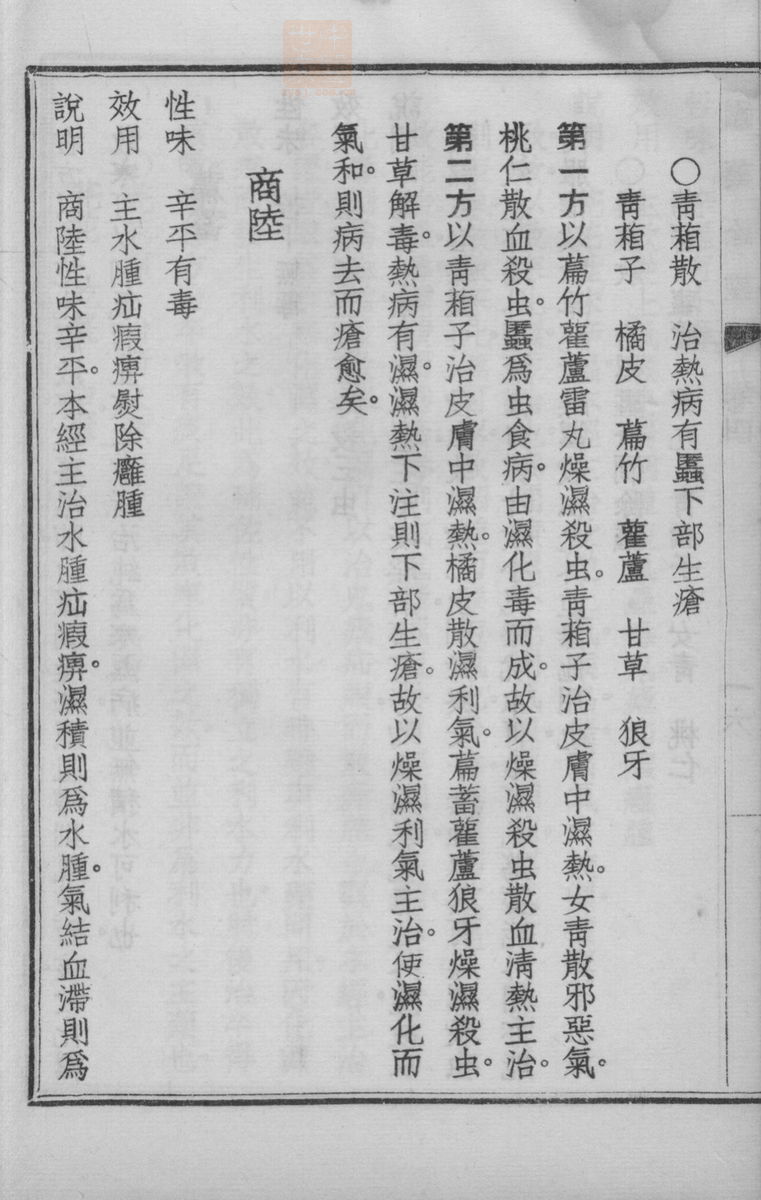 〇靑葙散　治熱病有䘌下部生瘡
靑葙子　橘皮　萹竹　雚蘆　甘草　狼牙
第一方以萹竹雚蘆雷丸燥濕殺虫。靑葙子治皮膚中濕熱。女靑散邪惡氣。
桃仁散血殺虫。䘌爲虫食病。由濕化毒而成。故以燥濕殺虫散血淸熱主治。
第二方以靑葙子治皮膚中濕熱。橘皮散濕利氣。萹蓄雚蘆狼牙燥濕殺虫。
甘草解毒。熱病有濕。濕熱下注則下部生瘡。故以燥濕利氣主治。使濕化而
氣和。則病去而瘡愈矣。
商陸
性味　辛平有毒
效用　主水腫疝瘕痹熨除癰腫
說明　商陸性味辛平。本經主治水腫疝瘕痹。濕積則爲水腫。氣結血滯則爲